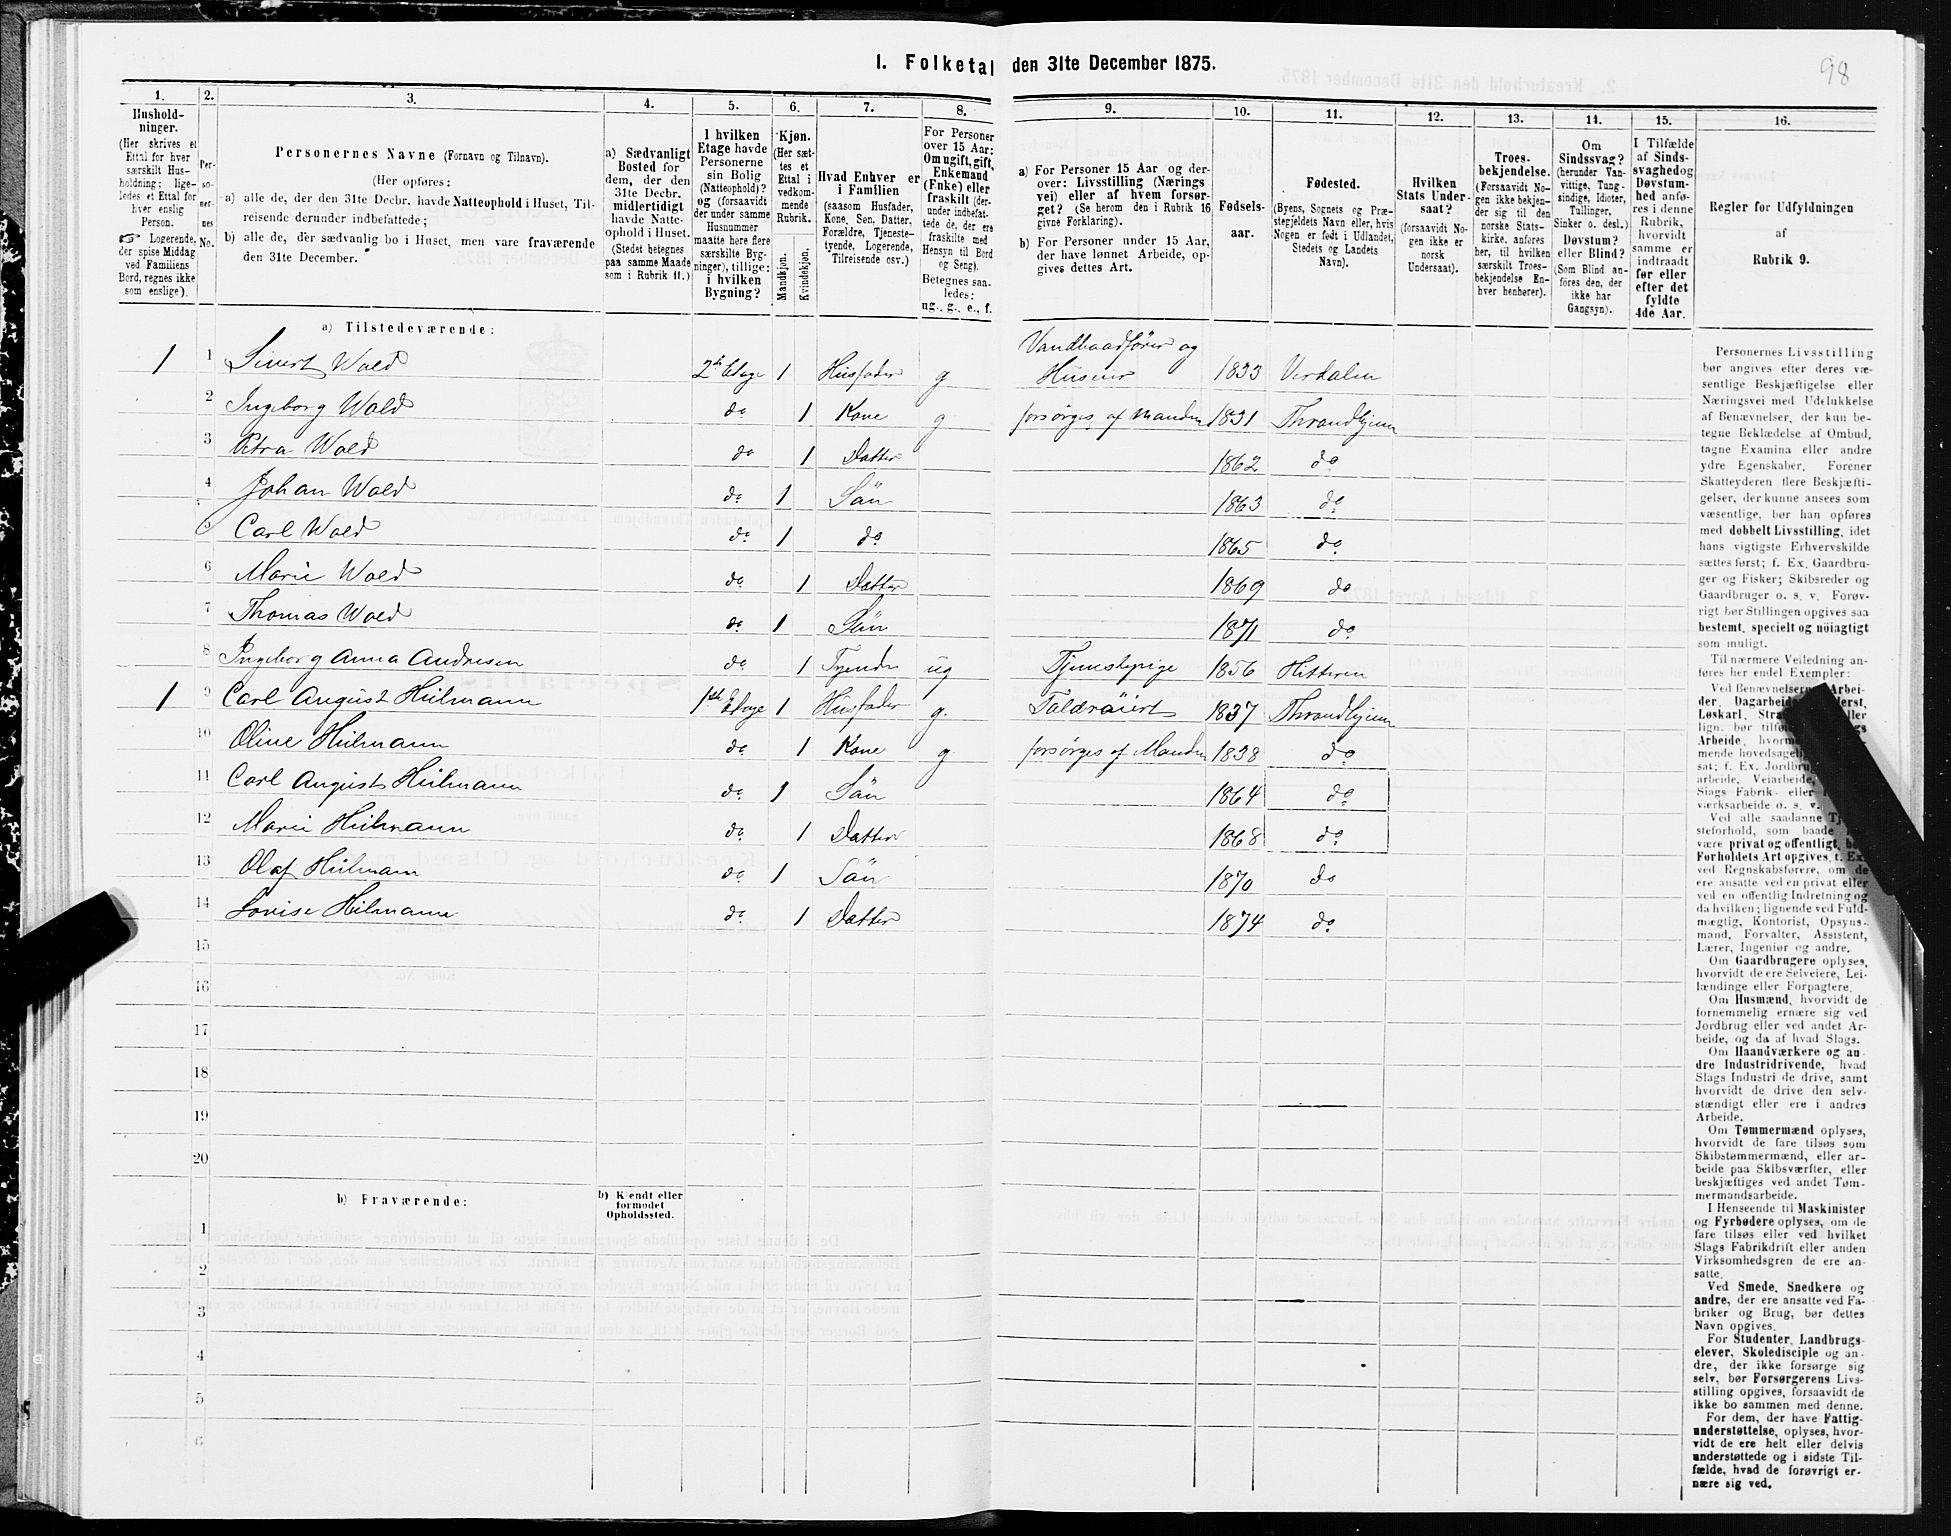 1. Folketal den 31te December 1875.
98
1. 2. 3. 4. 5. 6. 7. 8. 9. 10. 11. 12. 13. 14. 15. 16.
Hushold-
ninger.
(Her skrives et
Ettal for hver
særskilt Hus-
holdning; lige-
ledes et Ettal for
hver enslig
Person.
☞ Logerende,
der spise Middag
ved Familiens
Bord, regnes ikke
som enslige).
Per-
so-
ner-
nes
No.
Personernes Navne (Fornavn og Tilnavn).
(Her opføres:
a) alle de, der den 31te Decbr. havde Natteophold i Huset, Til-
reisende derunder indbefattede;
b) alle de, der sædvanlig bo i Huset, men vare fraværende
den 31te December.
a) Sædvanligt
Bosted for
dem, der den
31te Decbr.
midlertidigt
havde Natte-
ophold i Huset.
(Stedet betegnes
paa samme Maade
som i Rubrik 11.)
I hvilken
Etage havde
Personerne
sin Bolig
(Natteophold)?
og (forsaavidt
der under samme
Husnummer
maatte høre flere
særskilte Byg-
ninger), tillige:
i hvilken
Bygning?
Kjøn.
(Her sæt-
tes et
Ettal i
vedkom-
mende
Rubrik.
Mandkjøn.
Kvindekjøn.
Hvad Enhver er
i Familien
(saasom Husfader,
Kone, Søn, Datter,
Forældre, Tjeneste-
tyende, Logerende,
Tilreisende osv.)
For Personer
over 15 Aar:
Om ugift, gift,
Enkemand
(Enke) eller
fraskilt (der-
under indbefat-
tede de, der ere
fraskilte med
Hensyn til Bord
og Seng).
Betegnes saa-
ledes:
ug., g., e., f.
a) For Personer 15 Aar og der-
over: Livsstilling (Nærings
vei) eller af hvem forsør-
get? (Se herom den i Rubrik 16
givne Forklaring).
b) For Personer under 15 Aar,
der have lønnet Arbeide, op-
gives dettes Art.
Fødsels-
aar.
Fødested.
(Byens, Sognets og Præ-
stegjeldets Navn eller, hvis
Nogen er født i Udlandet,
Stedets og Landets
Navn).
Hvilken
Stats Under-
saat?
(forsaavidt No-
gen ikke er
norsk
Undersaat).
Troes-
bekjendelse.
(Forsaavidt No-
gen ikke bekjen-
der sig til den
norske Stats-
kirke, anføres
her, til hvilken
særskilt Troes-
bekjendelse En-
hver henhører).
Om
Sindssvag?
(herunder Van-
vittige, Tung-
sindige, Idioter,
Tullinger,
Sinker o. desl.)
Døvstum?
eller Blind?
(Som Blind an-
føres den, der
ikke har
Gangsyn).
I Tilfælde
af Sinds-
svaghed og
Døvstum-
hed anfø-
res i denne
Rubrik,
hvorvidt
samme er
indtraadt
før eller
efter det
fyldte
4de Aar.
Regler for Udfyldningen
af
Rubrik 9.
a) Tilstedeværende:
1 1 Sivert Wold 2de Etage 1 Husfader g Vandbaadfører og Huseier 1833 Verdalen
2 Ingeborg Wold do 1 Kone g forsørges af Manden 1831 Throndhjem
3 Petra Wold do 1 Datter 1862 do
4 Johan Wold do 1 Sön 1863 do
5 Carl Wold do 1 do 1865 do
6 Marie Wold do 1 Datter 1869 do
7 Thomas Wold do 1 Sön 1871 do
8 Ingeborg Anna Andresen do 1 Tyende ug Tjenestepige 1856 Hitteren
1 9 Carl August Hülmann 1ste Etage 1 Husfader g. 1837 Throndhjem
10 Oline Hülmann do 1 Kone g forsørges af Manden 1838 do
11 Carl August Hülmann do 1 Sön 1864 do
12 Marie Hülmann do 1 Datter 1868 do
13 Olaf Hülmann do 1 Sön 1870 do
14 Lovise Hülmann do 1 Datter 1874 do
15
16
17
18
19
20
b) Fraværende:
b) Kjendt eller
formodet
Opholdssted.
1
2
3
4
5
6
Personernes Livsstilling
bør angives efter deres væ-
sentlige Beskjæftigelse eller
Næringsvei med Udelukkelse
af Benævnelser, der kun be-
tegne Beklædelse af Ombud,
tagne Examina eller andre
ydre Egenskaber. Forener
Skatteyderen flere Beskjæfti-
gelser, der kunne ansees som
væsentlige, bør han opføres
med dobbelt Livsstilling, idet
hans vigtigste Erhvervskilde
sættes først; f. Ex. Gaardbru-
ger og Fisker; Skibsreder og
Gaardbruger o. s. v. Forøv-
rigt bør Stillingen opgives saa
bestemt, specielt og nöiagtigt
som muligt.
Til nærmere Veiledning an-
føres her endel Exempler:
Ved Benævnelserne Arbei-
der, Dagarbeid
Løskarl, Stra
lign. bør tilfø
Arbeide, hvorm
mende hovedsagel
sat; f. Ex. Jordbru
arbeide, Veiarbeide,
Slags Fabrik- eller
værksarbeide o. s. v.
Ved alle saadanne Tj
steforhold, som baade
være privat og offentligt, bør
Forholdets Art opgives, t. Ex.
ved Regnskabsførere, om de
ere ansatte ved en privat eller
ved en offentlig Indretning og
da hvilken; lignende ved Fuld-
mægtig, Kontorist, Opsyns-
mand, Forvalter, Assistent,
Lærer, Ingeniør og andre.
Om Gaardbrugere oplyses,
hvorvidt de ere Selveiere, Lei-
lændinge eller Forpagtere.
Om Husmænd, hvorvidt de
fornemmelig ernære sig ved
Jordbrug eller ved andet Ar-
beide, og da af hvad Slags.
Om Haandværkere og an-
dre Industridrivende, hvad
Slags Industri de drive, samt
hvorvidt de drive den selv-
stændigt eller ere i andres
Arbeide.
Om Tømmermænd oplyses,
hvorvidt de fare tilsøs som
Skibstømmermænd, eller ar-
beide paa Skibsværfter, eller
beskjæftiges ved andet Tøm-
mermandsarbeide.
I Henseende til Maskinister
og Fyrbødere oplyses, om de
fare tilsøs eller ved hvilket
Slags Fabrikdrift eller anden
Virksomhedsgren de ere an-
satte.
Ved Smede, Snedkere og
andre, der ere ansatte ved Fa-
briker og Brug, bør dettes
Navn opgives.
For Studenter, Landbrugs-
elever, Skoledisciple og an-
dre, der ikke forsørge sig
selv, bør Forsørgerens Livs-
stilling opgives, forsaavidt de
ikke bo sammen med denne.
For dem, der have Fattig-
understøttelse, oplyses, hvor-
vidt de ere helt eller delvis
understøttede og i sidste Til-
fælde, hvad de forøvrigt er-
nære sig ved.